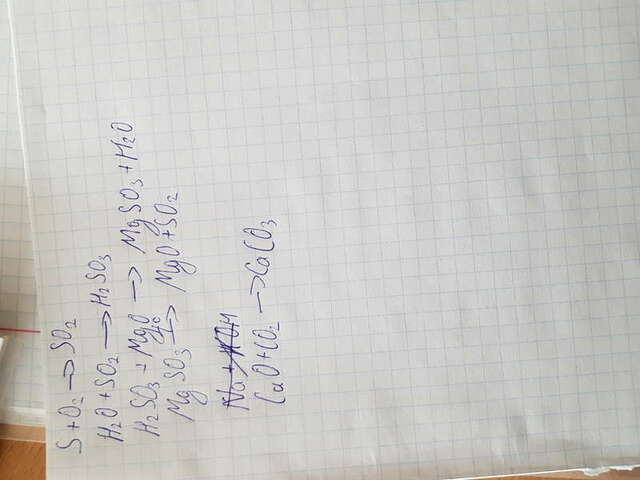 S + O₂ → SO₂
H₂O + SO₂ → H₂SO₃
H₂SO₃ + MgO → MgSO₃ + H₂O
MgSO₃ →(t°) MgO + SO₂
CaO + CO₂ → CaCO₃